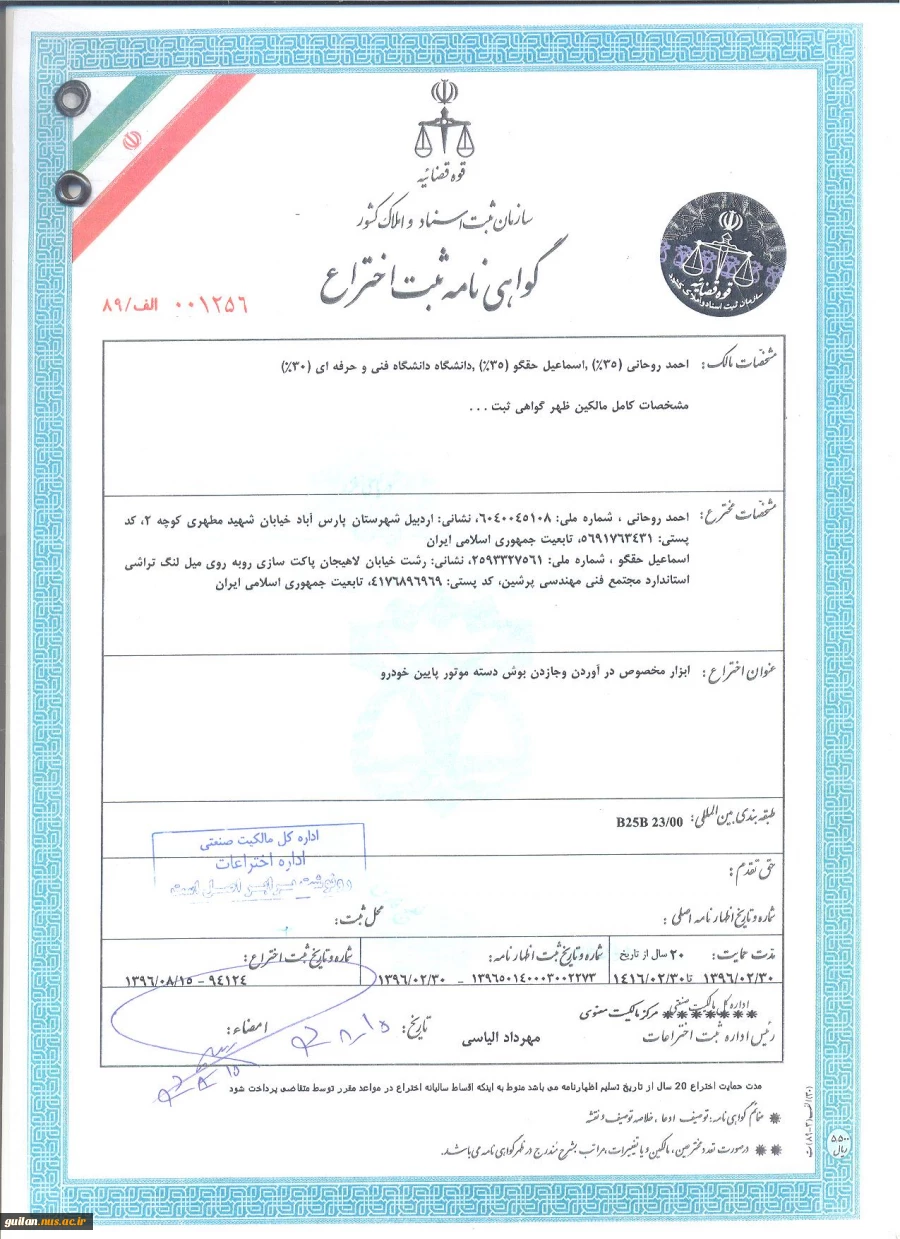 قوه قضائیه
سازمان ثبت اسناد و املاک کشور
گواهی نامه ثبت اختراع
۰۰۱۲۵۶ الف/۸۹
قوه قضائیه
سازمان ثبت اسناد و املاک کشور
مشخصات مالک: احمد روحانی (۳۵٪) ,اسماعیل حقگو (۳۵٪) ,دانشگاه دانشگاه فنی و حرفه ای (۳۰٪)
مشخصات کامل مالکین ظهر گواهی ثبت ...
مشخصات مخترع: احمد روحانی ، شماره ملی: ۶۰۴۰۰۴۵۱۰۸، نشانی: اردبیل شهرستان پارس آباد خیابان شهید مطهری کوچه ۲، کد
پستی: ۵۶۹۱۷۶۳۴۳۱، تابعیت جمهوری اسلامی ایران
اسماعیل حقگو ، شماره ملی: ۲۵۹۳۳۲۷۵۶۱، نشانی: رشت خیابان لاهیجان پاکت سازی روبه روی میل لنگ تراشی
استاندارد مجتمع فنی مهندسی پرشین، کد پستی: ۴۱۷۶۸۹۶۹۶۹، تابعیت جمهوری اسلامی ایران
عنوان اختراع: ابزار مخصوص در آوردن وجازدن بوش دسته موتور پایین خودرو
طبقه بندی بین المللی: B25B 23/00
اداره کل مالکیت صنعتی
اداره اختراعات
رونوشت برابر اصل است
حق تقدم:
شماره و تاریخ اظهارنامه اصلی:
محل ثبت:
مدت حمایت: ۲۰ سال از تاریخ
۱۳۹۶/۰۲/۳۰ تا ۱۴۱۶/۰۲/۳۰
شماره و تاریخ ثبت اظهارنامه:
۱۳۹۶۵۰۱۴۰۰۰۳۰۰۲۲۷۳ - ۱۳۹۶/۰۲/۳۰
شماره و تاریخ ثبت اختراع:
۹۴۱۲۴ - ۱۳۹۶/۰۸/۱۵
اداره کل مالکیت صنعتی
مرکز مالکیت معنوی
رئیس اداره ثبت اختراعات
مهرداد الیاسی
تاریخ:
امضاء:
مدت حمایت اختراع 20 سال از تاریخ تسلیم اظهارنامه می باشد منوط به اینکه اقساط سالیانه اختراع در مواعد مقرر توسط متقاضی پرداخت شود
* ضمائم گواهی نامه: توصیف، ادعا، خلاصه توصیف و نقشه
* * درصورت تعدد مخترعین، مالکین و یا تغییرات، مراتب بشرح مندرج در ظهر گواهی نامه می باشد.
۵۵۰۰
ریال
guilan.nus.ac.ir